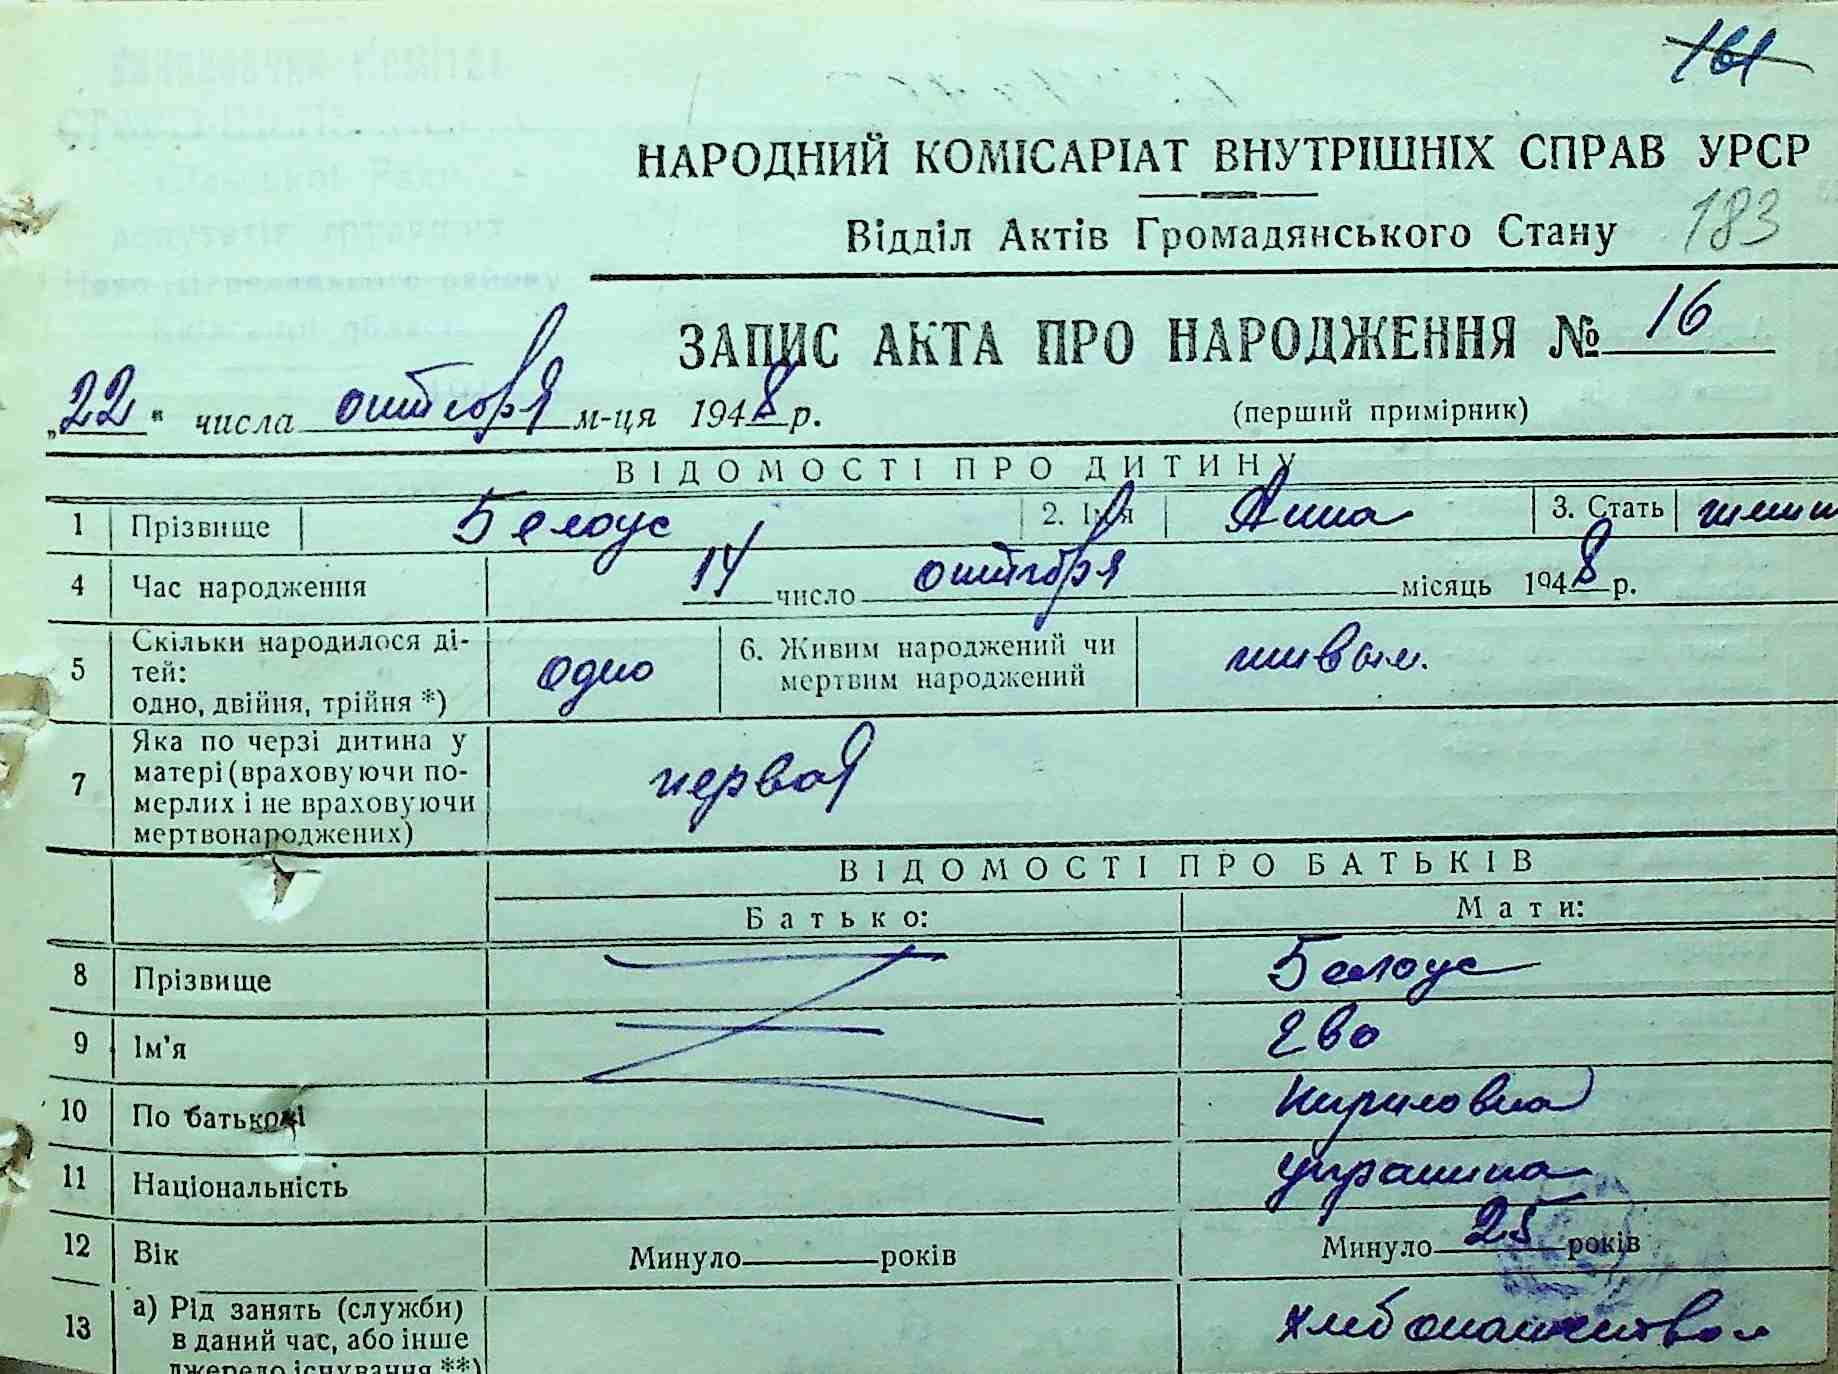 161
НАРОДНИЙ КОМІСАРІАТ ВНУТРІШНІХ СПРАВ УРСР
Відділ Актів Громадянського Стану 183
ЗАПИС АКТА ПРО НАРОДЖЕННЯ № 16
„22“ числа октября м-ця 1948 р. (перший примірник)
ВІДОМОСТІ ПРО ДИТИНУ
1 Прізвище Белоус 2. Ім'я Анна 3. Стать
4 Час народження 14 число октября місяць 1948 р.
5 Скільки народилося ді-
тей:
одно, двійня, трійня *) одно 6. Живим народжений чи
мертвим народжений живым.
7 Яка по черзі дитина у
матері (враховуючи по-
мерлих і не враховуючи
мертвонароджених) первая
ВІДОМОСТІ ПРО БАТЬКІВ
Батько: Мати:
8 Прізвище Белоус
9 Ім'я Ева
10 По батькові Кириловна
11 Національність украинка
12 Вік Минуло років Минуло 25 років
13 а) Рід занять (служби)
в даний час, або інше
джерело існування **) хлебопашество